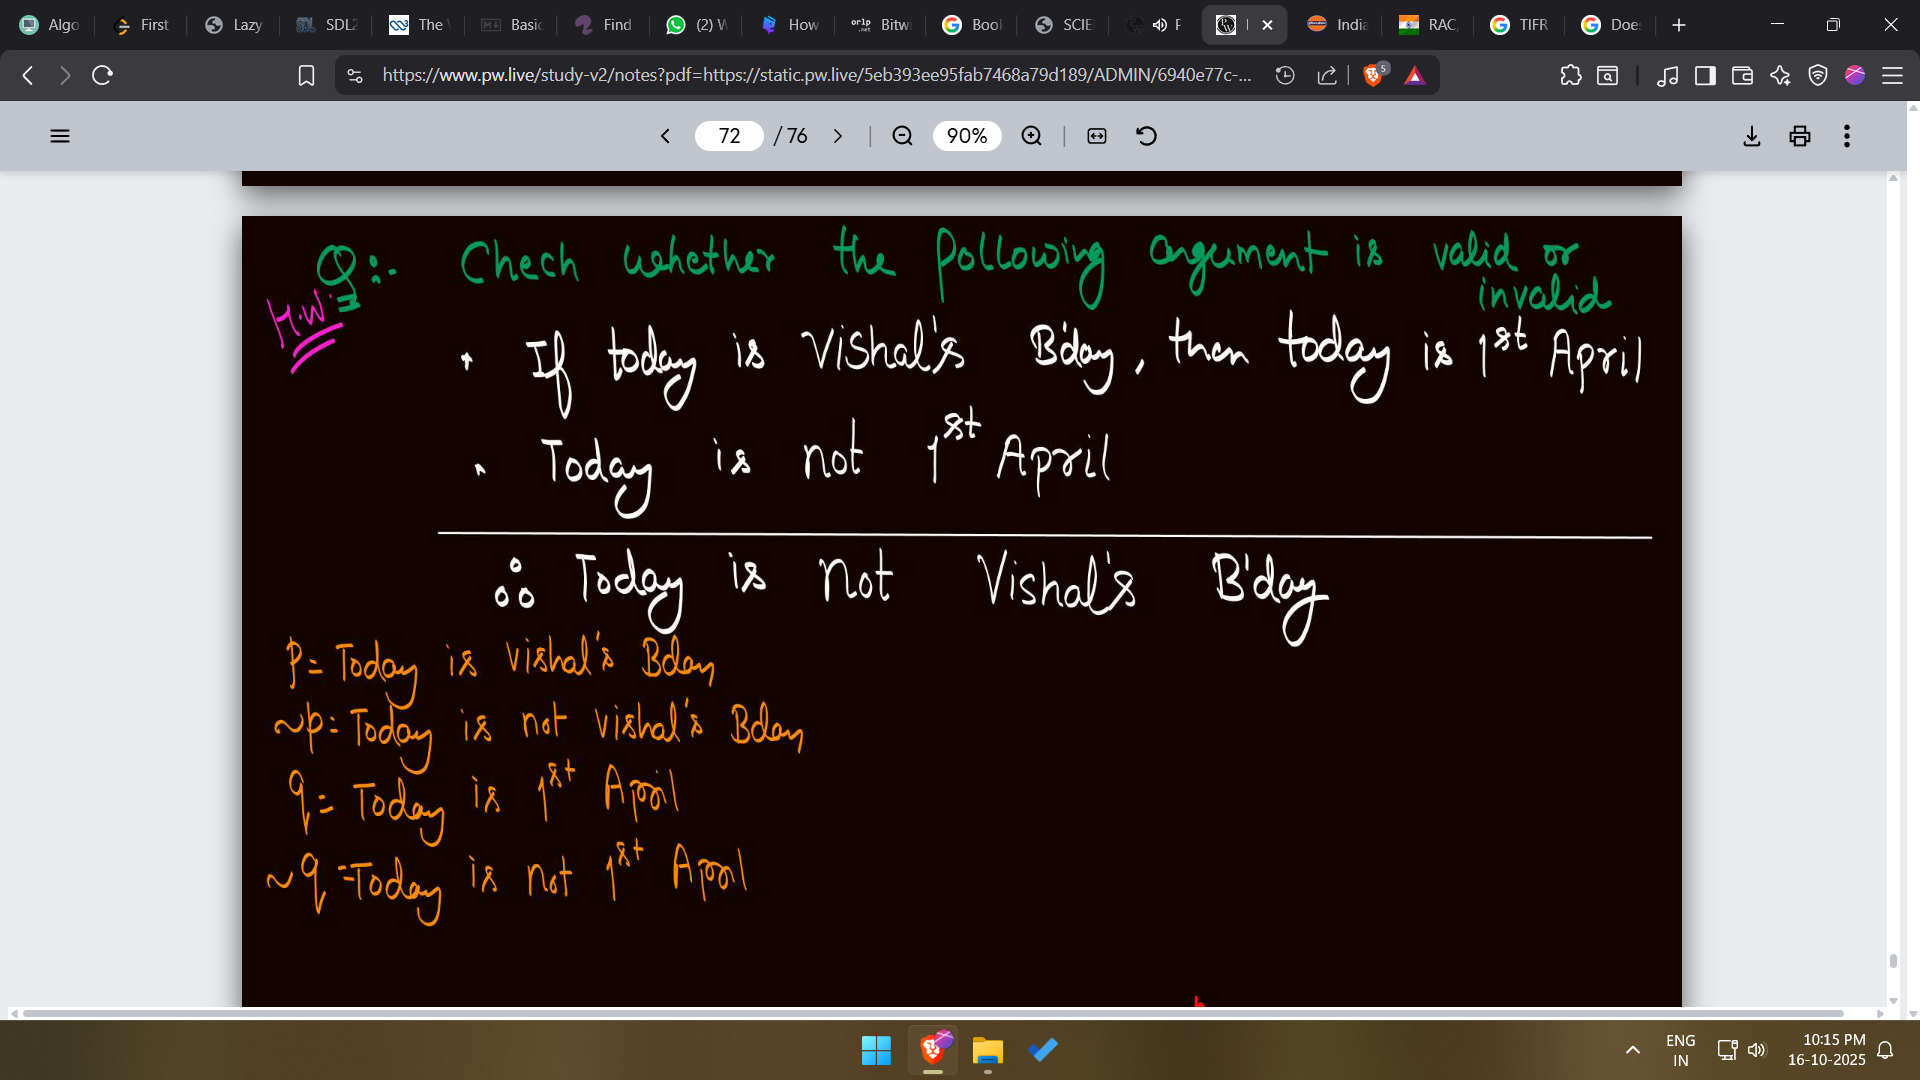 Algo
First
Lazy
SDL2
The
Basic
Find
(2) W
How
orlp .net
Bitw
Book
SCIE
India
RAC,
TIFR
Does
https://www.pw.live/study-v2/notes?pdf=https://static.pw.live/5eb393ee95fab7468a79d189/ADMIN/6940e77c-...
5
72 / 76
90%
Q:- Chech whether the following argument is valid or
invalid
H.W
If today is Vishal's B'day, then today is 1st April
Today is not 1st April
∴ Today is not Vishal's B'day
p= Today is vishal's Bday
~p= Today is not vishal's Bday
q= Today is 1st April
~q =Today is not 1st April
ENG
IN
10:15 PM
16-10-2025